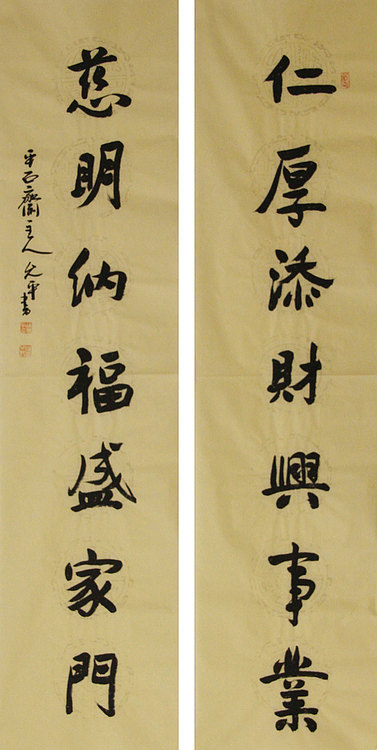 仁厚添財興事業
慈明纳福盛家門
平石齋主人允平書